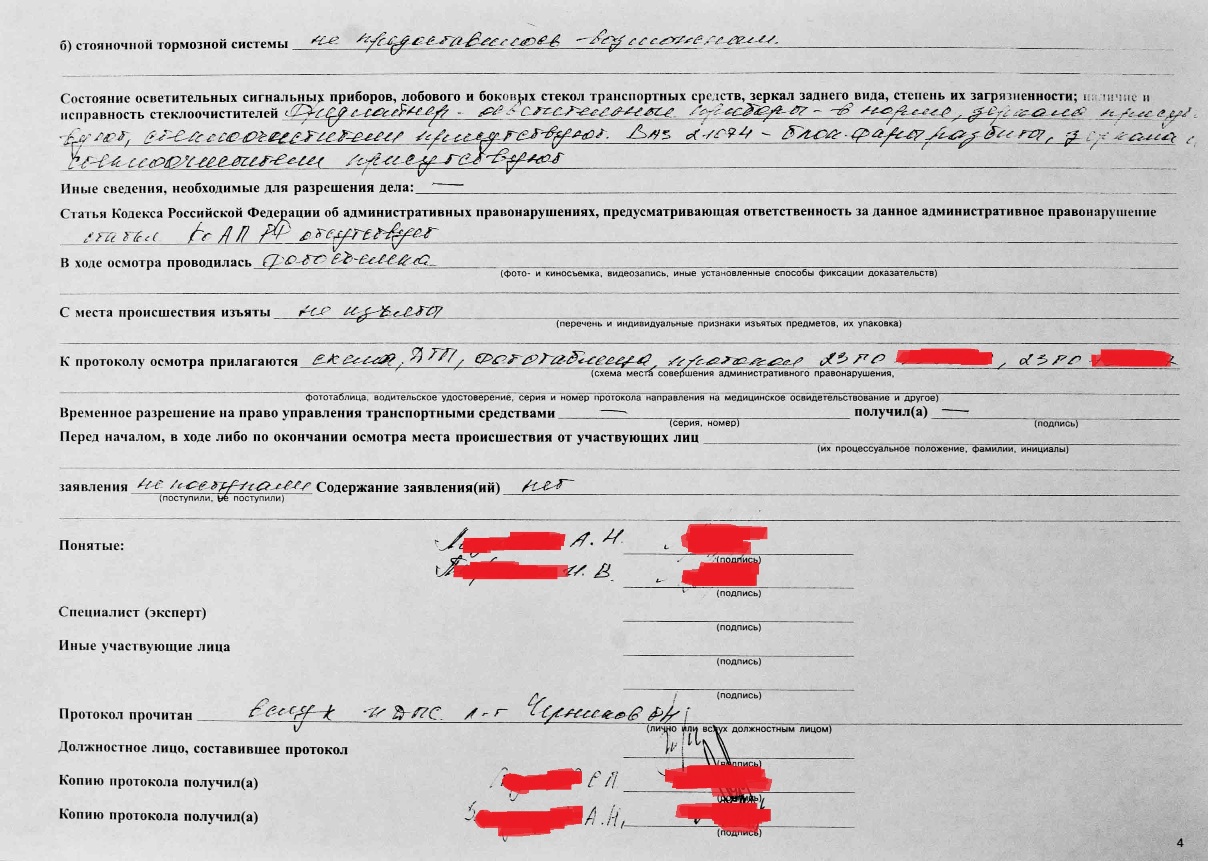 б) стояночной тормозной системы не предоставилось возможным.
Состояние осветительных сигнальных приборов, лобового и боковых стекол транспортных средств, зеркал заднего вида, степень их загрязненности; наличие и
исправность стеклоочистителей Фредлайнер - осветительные приборы - в норме, зеркала присут-
вуют, стеклоочистители присутствуют. ВАЗ 21074 - блок-фары разбита, зеркала
стеклоочистители присутствуют
Иные сведения, необходимые для разрешения дела: —
Статья Кодекса Российской Федерации об административных правонарушениях, предусматривающая ответственность за данное административное правонарушение
статья КоАП РФ отсутствует
В ходе осмотра проводилась фотосъемка
(фото- и киносъемка, видеозапись, иные установленные способы фиксации доказательств)
С места происшествия изъяты не изъято
(перечень и индивидуальные признаки изъятых предметов, их упаковка)
К протоколу осмотра прилагаются схема, ДТП, фототаблица, протокол 23 ПО , 23 ПО
(схема места совершения административного правонарушения,
фототаблица, водительское удостоверение, серия и номер протокола направления на медицинское освидетельствование и другое)
Временное разрешение на право управления транспортными средствами — получил(а) —
(серия, номер) (подпись)
Перед началом, в ходе либо по окончании осмотра места происшествия от участвующих лиц
(их процессуальное положение, фамилии, инициалы)
заявления не поступили Содержание заявления(ий) нет
(поступили, не поступили)
Понятые: А. Н.
(подпись)
И. В.
(подпись)
Специалист (эксперт)
(подпись)
Иные участвующие лица
(подпись)
(подпись)
Протокол прочитан вслух ИДПС л-т Черников
(лично или вслух должностным лицом)
Должностное лицо, составившее протокол
(подпись)
Копию протокола получил(а) Е.П.
(подпись)
Копию протокола получил(а) А.Н.
(подпись)
4